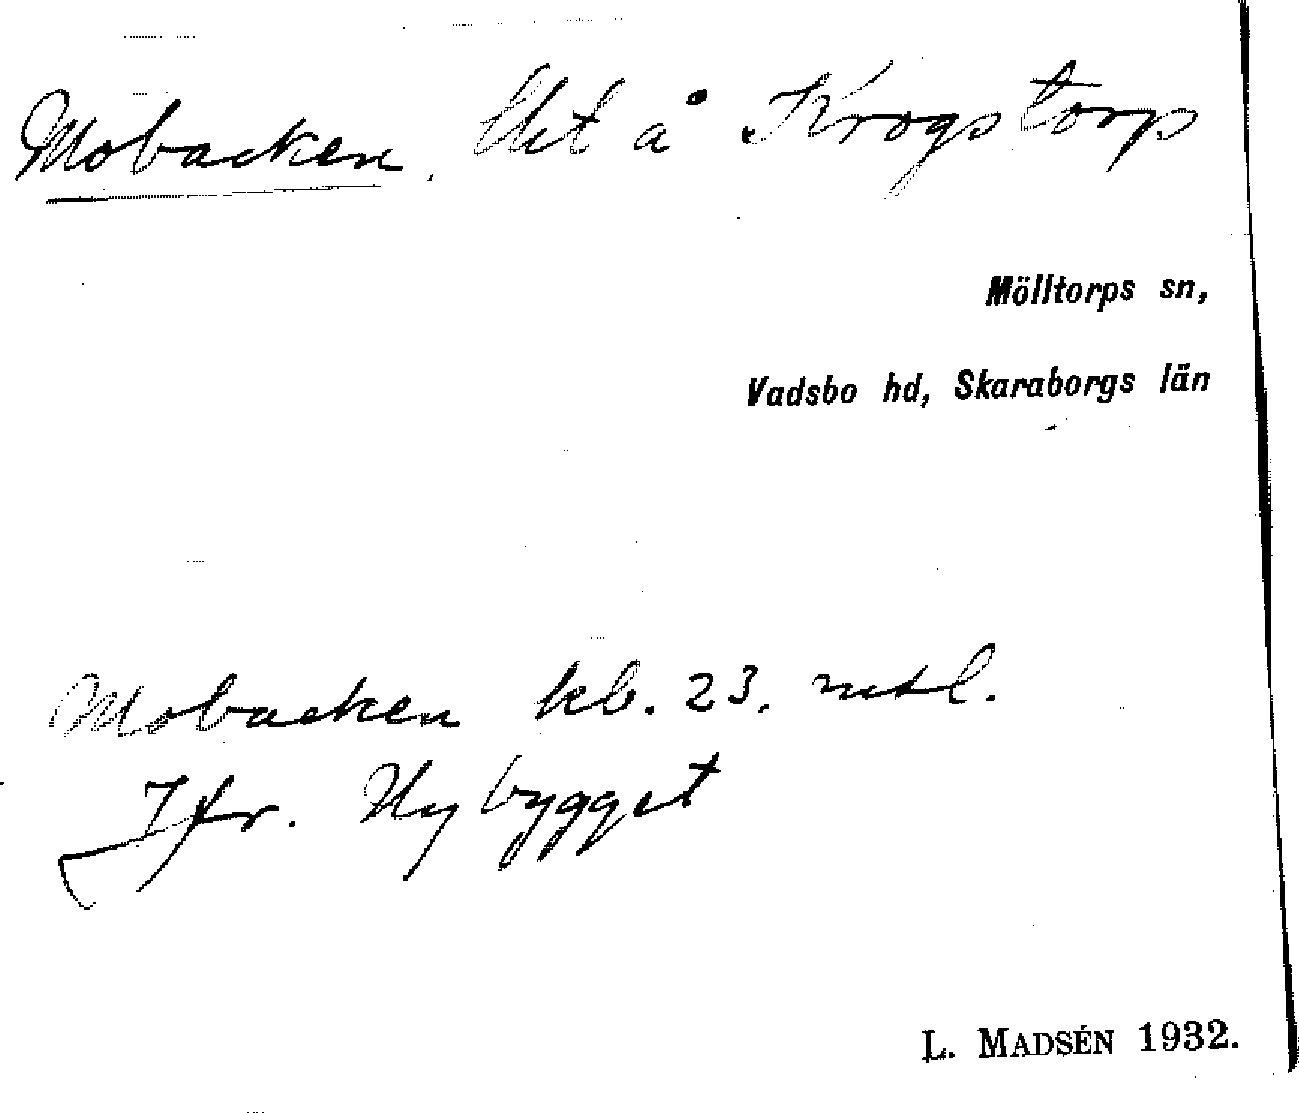 Mobacken, lht å Krogstorp
Mölltorps sn,
Vadsbo hd, Skaraborgs län
Mobacken kb. 23. mtl.
Jfr. Nybygget
L. MADSÉN 1932.